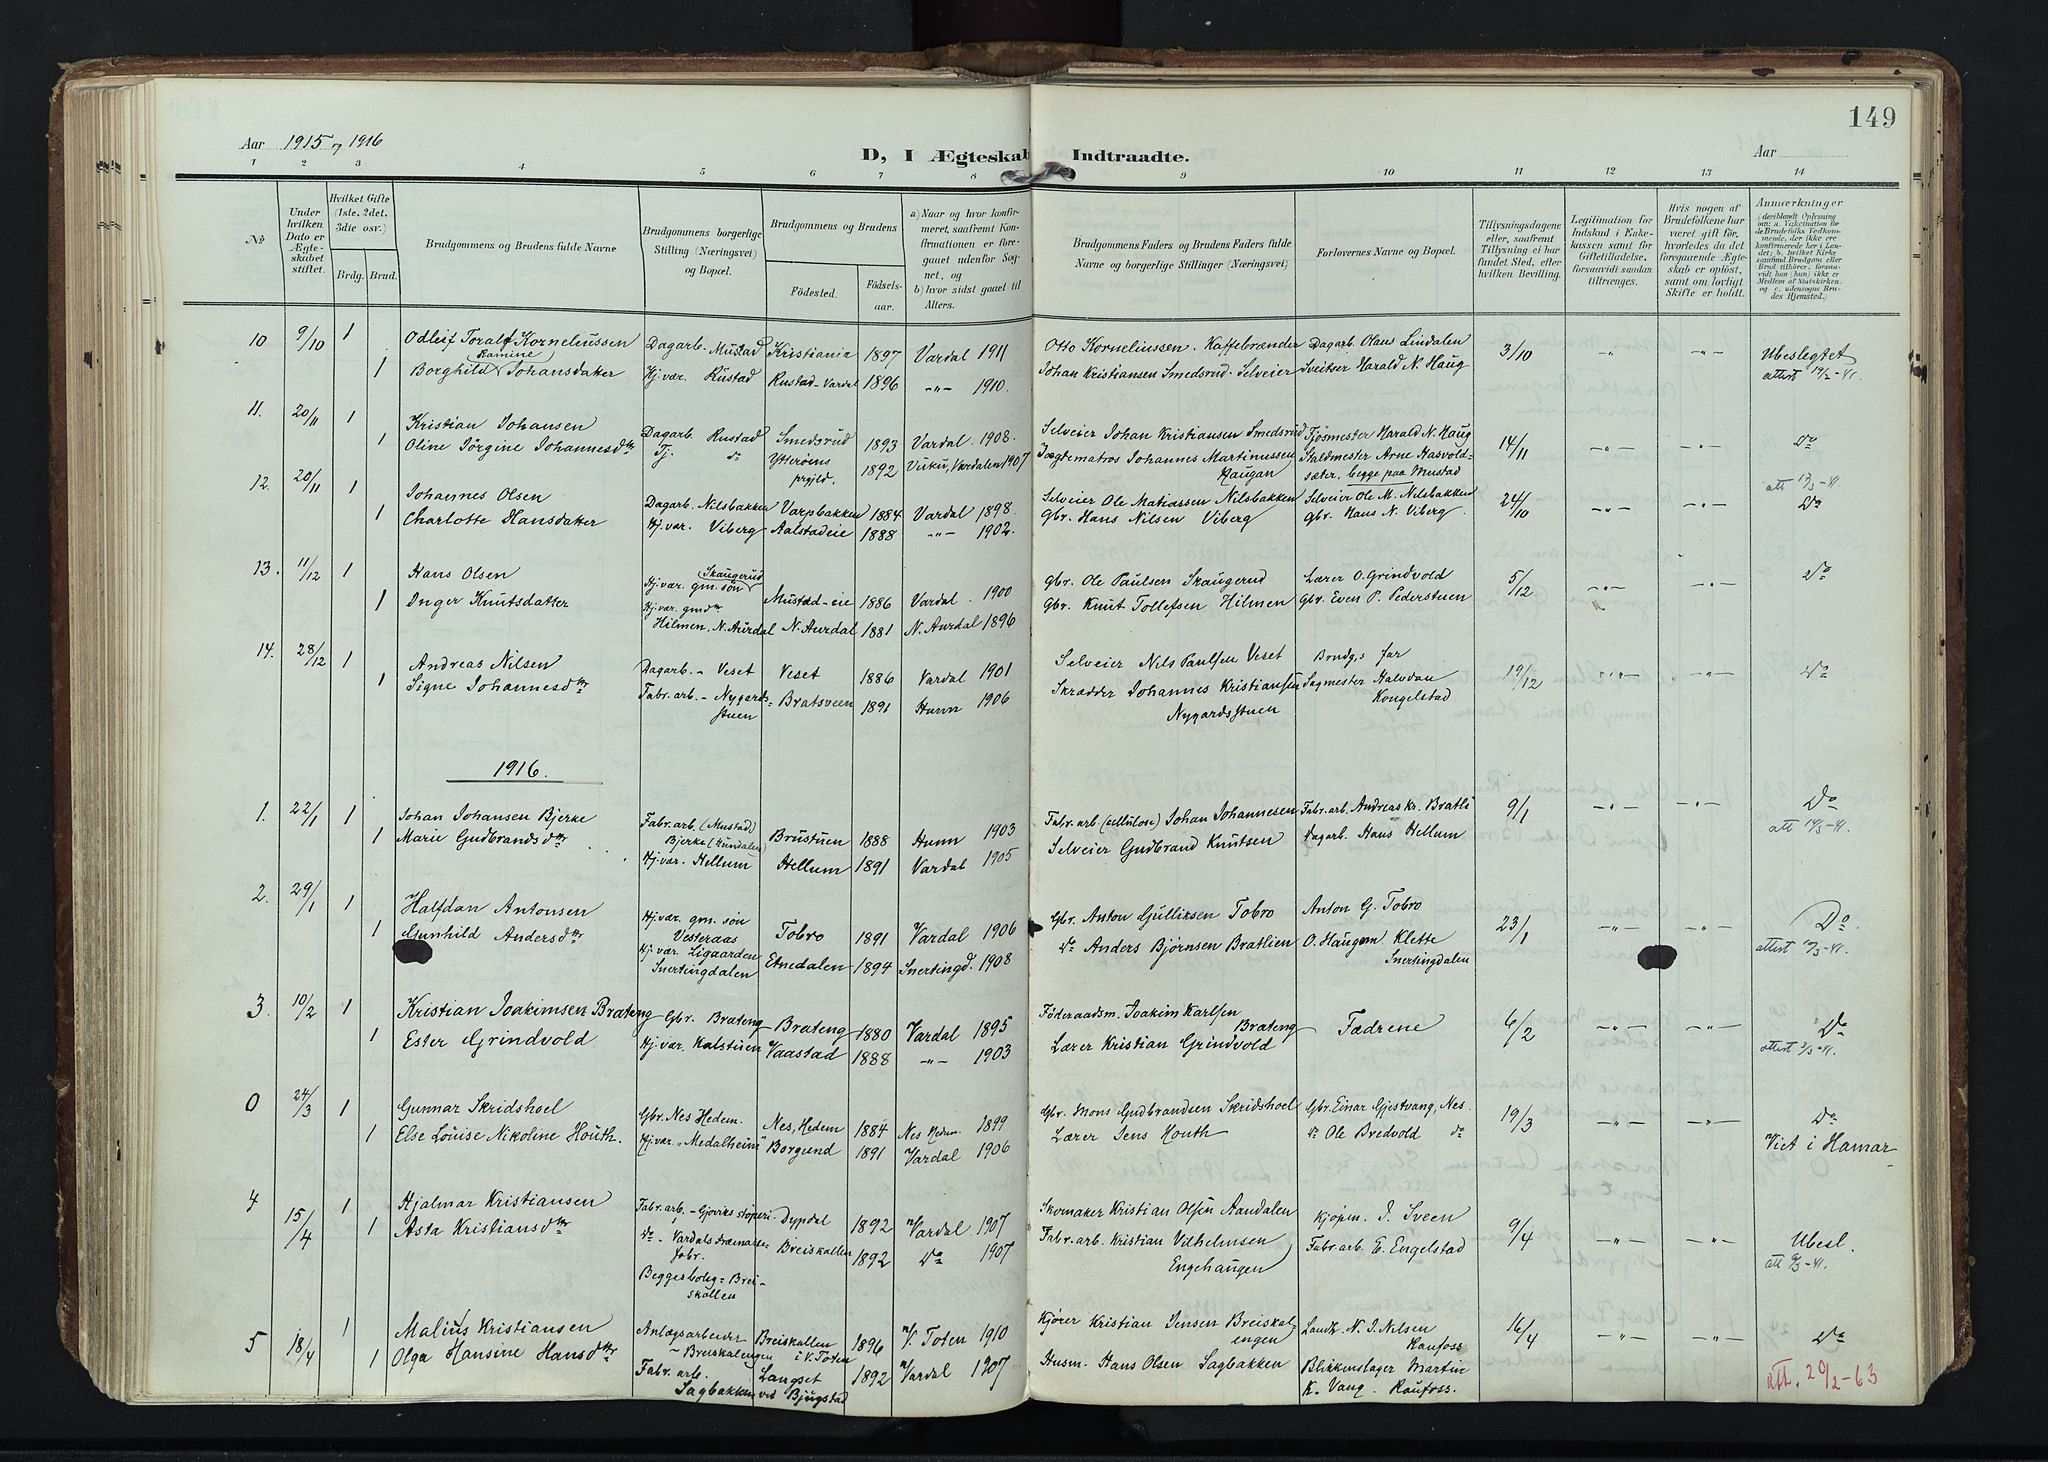 149
Aar 1915 og 1916
D, I Ægteskab Indtraadte.
Aar
1 2 3 4 5 6 7 8 9 10 11 12 13 14
No.
Under hvilken Dato er Ægteskabet stiftet.
Hvilket Gifte (1ste, 2det, 3die osv.)
Brdg. Brud.
Brudgommens og Brudens fulde Navne
Brudgommens borgerlige Stilling (Næringsvei) og Bopæl.
Brudgommens og Brudens
Fødested. Fødselsaar.
a) Naar og hvor konfirmeret, saafremt Konfirmationen er foregaaet udenfor Sognet, og
b) hvor sidst gaaet til Alters.
Brudgommens Faders og Brudens Faders fulde Navne og borgerlige Stillinger (Næringsvei)
Forlovernes Navne og Bopæl.
Tillysningsdagene eller, saafremt Tillysning ei har fundet Sted, efter hvilken Bevilling.
Legitimation for Indskud i Enkekassen samt for Giftetilladelse, forsaavidt saadan tiltrænges.
Hvis nogen af Brudefolkene har været gift før, hvorledes da det foregaaende Ægteskab er opløst, samt om lovligt Skifte er holdt.
Anmærkninger
10 9/10 1 Odleif Toralf Korneliussen Dagarb. Mustad Kristiania 1897 Vardal 1911 Otto Korneliussen. Kaffebrænder Dagarb. Olaus Lindalen 3/10 Ubeslegtet
1 Borghild Ramine Johansdatter Hj.vær. Rustad Rustad-Vardal 1896 -"- 1910. Johan Kristiansen Smedsrud. Selveier Sveitser Harald N. Haug attest 19/2-41.
11. 20/11 1 Kristian Johansen Dagarb. Rustad Smedsrud 1893 Vardal 1908. Selveier Johan Kristiansen Smedsrud Fjøsmester Harald N. Haug 14/11 Do
1 Oline Jørgine Johannesdtr Tj. do Ytterøens prgjld. 1892 Vuku, Værdalen 1907 Jægtematros Johannes Martinussen Haugan Staldmester Arne Hasvoldsæter, begge paa Mustad
12. 20/11 1 Johannes Olsen Dagarb. Nilsbakken Varpbakken 1884 Vardal 1898. Selveier Ole Matiassen Nilsbakken Selveier Ole M. Nilsbakken 24/10 Do
1 Charlotte Hansdatter Hj.vær. Viberg Aalstadeie 1888 -"- 1902. Gbr. Hans Nilsen Viberg Gbr. Hans N. Viberg.
13. 11/12 1 Hans Olsen Hj.vær. gm. søn Skaugerud Mustad-eie 1886 Vardal 1900 Gbr. Ole Paulsen Skaugerud Lærer O. Grindvold 5/12 Do
1 Inger Knutsdatter Hj.vær. gmdtr Hilmen, N. Aurdal N. Aurdal 1881 N. Aurdal 1896 Gbr. Knut Tollefsen Hilmen Gbr. Even P. Pederstuen
14. 28/12 1 Andreas Nilsen Dagarb. - Veset Veset 1886 Vardal 1901 Selveier Nils Paulsen Veset Brudg.s far 19/12 Do
1 Signe Johannesdtr Fabr.arb. - Nygardsstuen Bratsveen 1891 Hunn 1906 Skrædder Johannes Kristiansen Nygardsstuen Sagmester Halvdan Kongelstad
1916.
1. 22/1 1 Johan Johansen Bjerke Fabr.arb. (Mustad) Bjerke (Hundalen) Brustuen 1888 Hunn 1903 Fabr.arb (cellulose) Johan Johannesen Fabr.arb. Andreas Kr. Bratli 9/1 Do
1 Marie Gudbrandsdtr Hj.vær. Hellum Hellum 1891 Vardal 1905 Selveier Gudbrand Knutsen Dagarb. Hans Hellum
2. 29/1 1 Halfdan Antonsen Hj.vær. gm. søn Vesteraas Tobro 1891 Vardal 1906 Gbr. Anton Gulliksen Tobro Anton G. Tobro 23/1 Do.
1 Gunhild Andersdtr Hj.vær Ligaarden Snertingdalen Etnedalen 1894 Snertingd. 1908 do Anders Bjørnsen Bratlien O. Haugom Klette Snertingdalen
3. 10/2 1 Kristian Joakimsen Brateng Gbr. Brateng Brateng 1880 Vardal 1895 Føderaadsm. Joakim Karlsen Brateng Fædrene 6/2 Do
1 Ester Grindvold Hj.vær. Kalstuen Vaastad 1888 -"- 1903 Lærer Kristian Grindvold
0 24/3 1 Gunnar Skridshoel Gbr. Nes Hedem. Nes, Hedem 1884 Nes Hedem. 1899 Gbr. Mons Gudbrandsen Skridshoel Gbr. Einar Gjestvang, Nes. 19/3 Do
1 Else Louise Nikoline Houth. Hj.vær "Medalheim" Borgund 1891 Vardal 1906 Lærer Jens Houth do Ole Bredvold do Viet i Hamar
4 15/4 1 Hjalmar Kristiansen Fabr.arb. - Gjøviks støperi Dypdal 1892 Vardal 1907 Skomaker Kristian Olsen Aandalen Kjøpm. J. Sveen 9/4 Ubesl.
1 Asta Kristiansdtr do - Vardals Træmassefabr. Breiskallen 1892 Do 1907 Fabr.arb. Kristian Vilhelmsen Engehaugen Fabr.arb. E. Engelstad
Begges bolig = Breiskallen
5 18/4 1 Malius Kristiansen Anlægsarbeider - Breiskalengen Breiskallen i V. Toten 1896 V. Toten 1910 Kjører Kristian Jensen Breiskalengen Landh. N. J. Nilsen Raufoss 16/4 Do
1 Olga Hansine Hansdtr Fabr. arb. Sagbakken Langset ved Bjugstad 1892 Vardal 1907 Husm. Hans Olsen Sagbakken Blikkenslager Martin K. Vang. Raufoss. att. 20/2-63